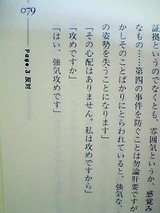 079
Page.3 反対
証拠というのでなくても、雰囲気というか、感覚み
なもの……第四の事件を防ぐことは勿論肝要ですが
かしそのことばかりにとらわれていると、強気な、
の姿勢を失うことになります」
「その心配はありません。私は攻めですから」
「攻めですか」
「はい、強気攻めです」